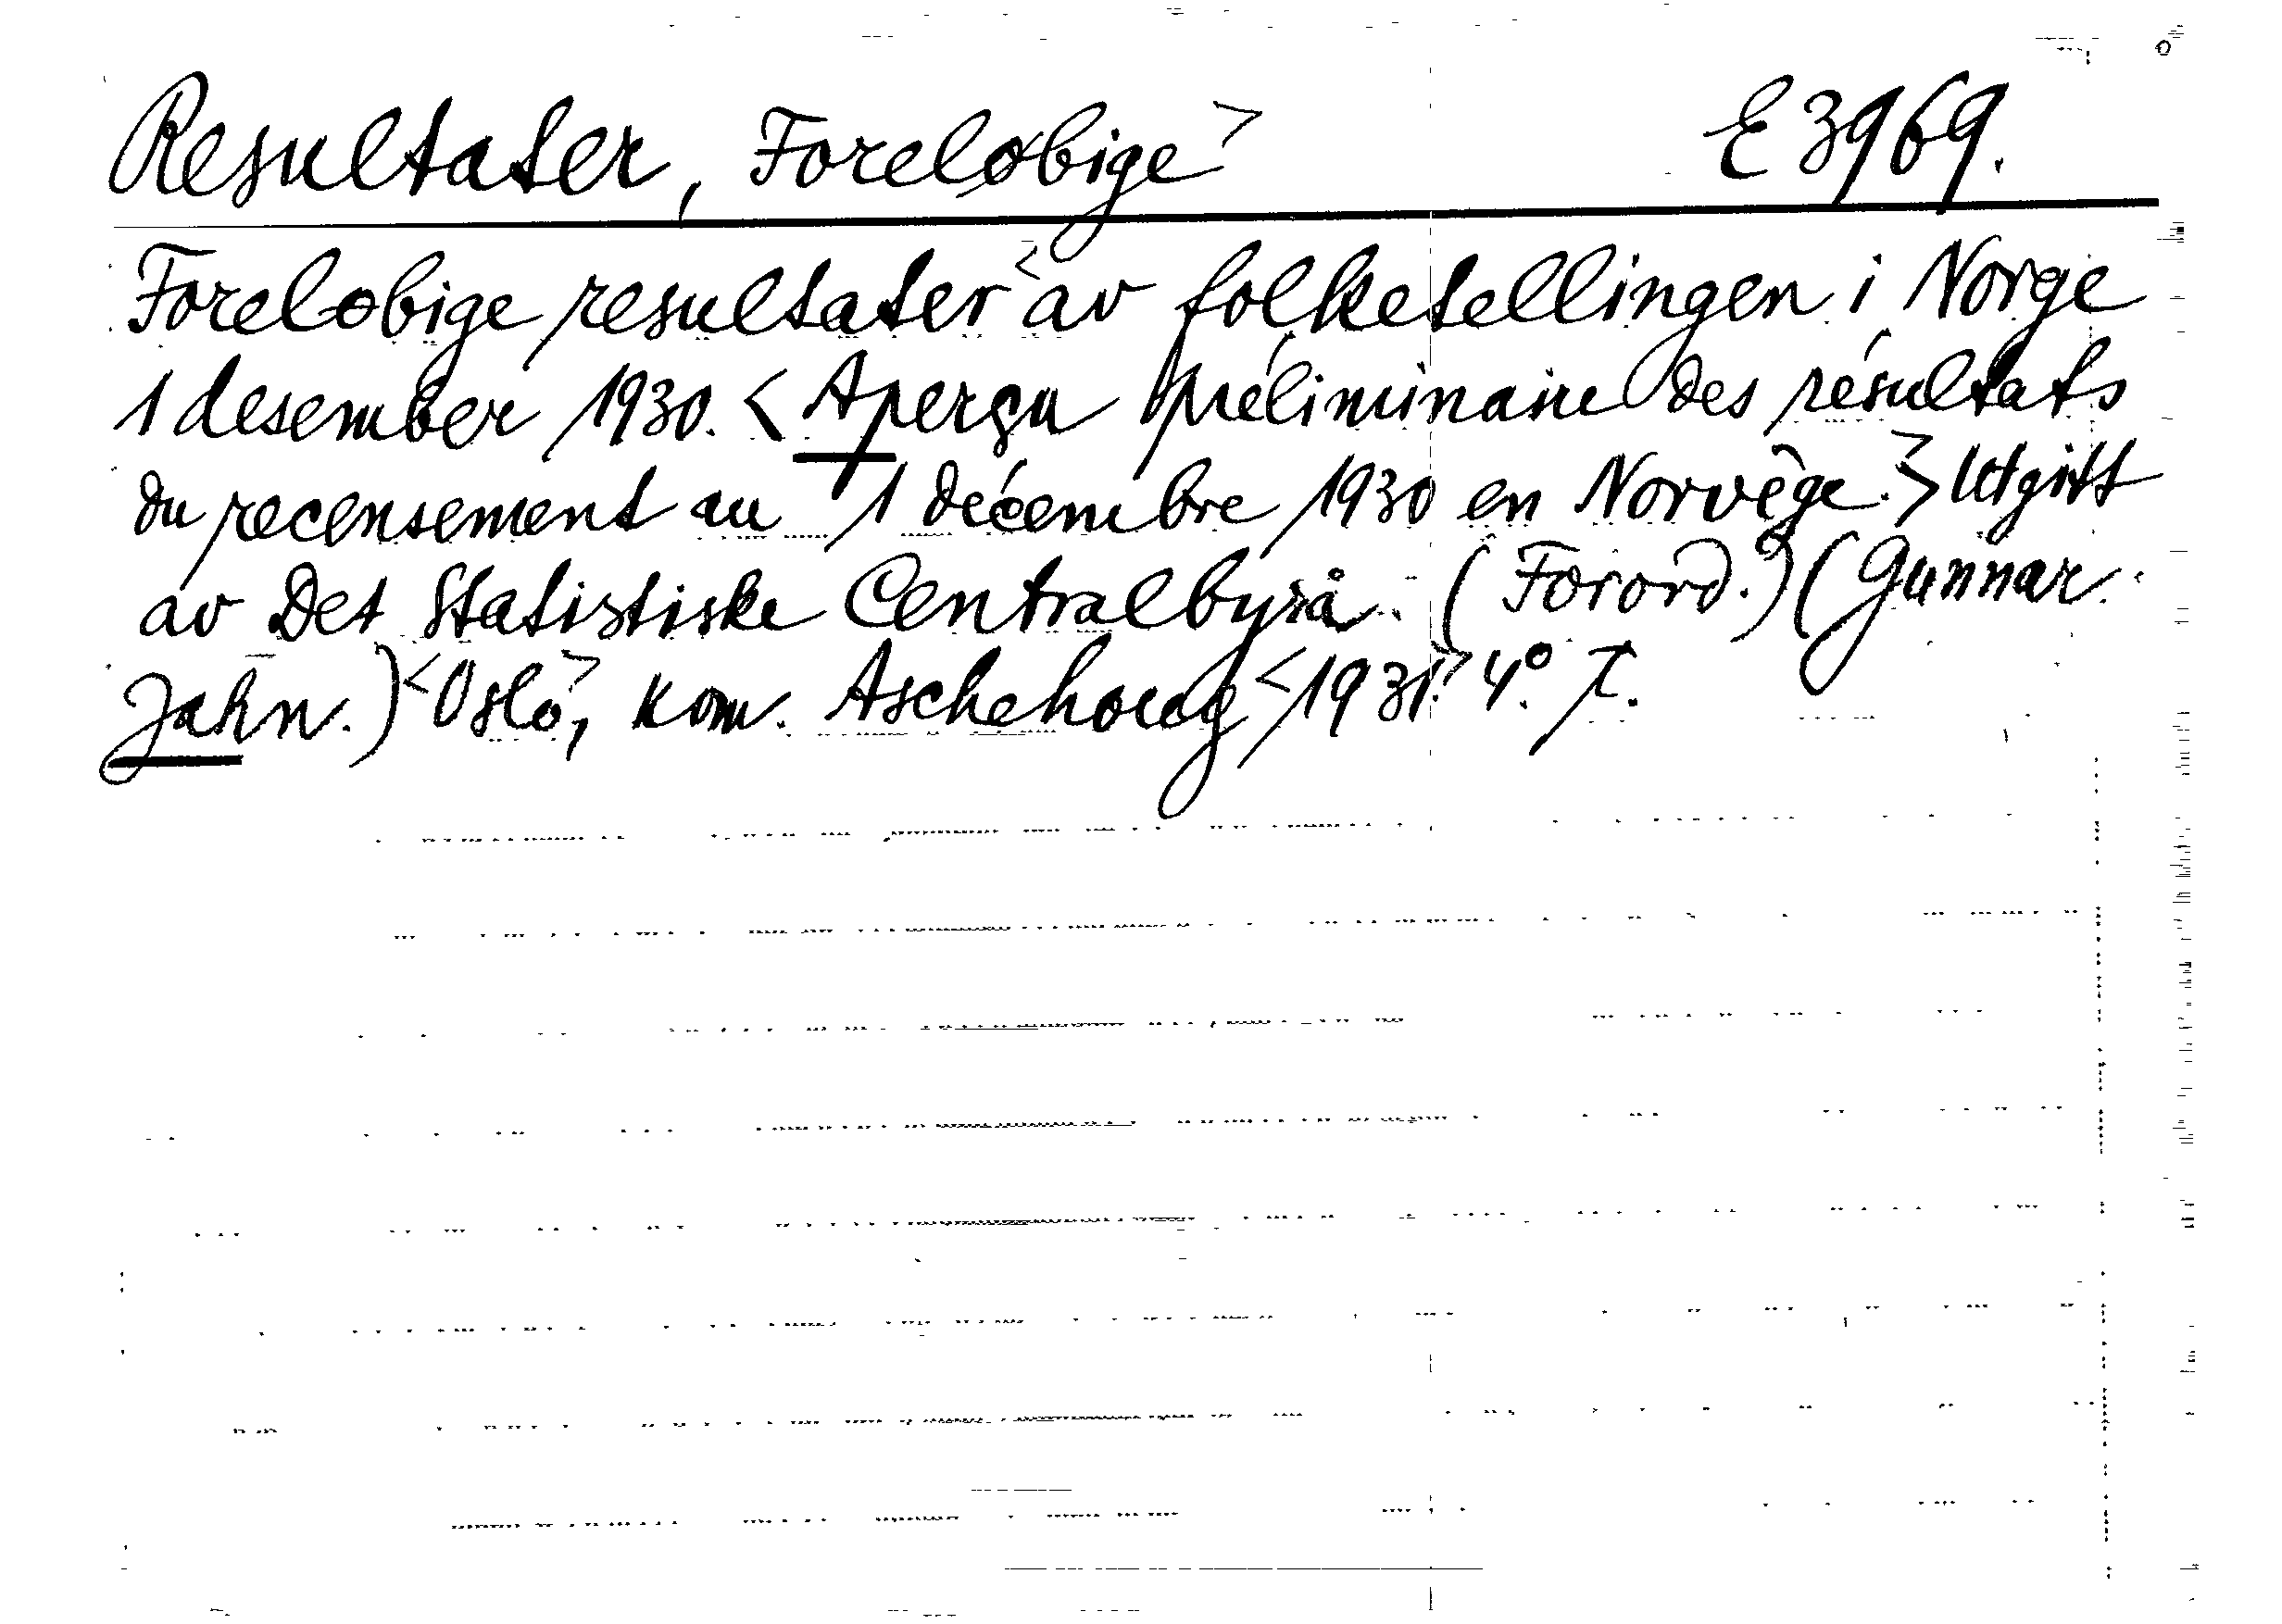 Resultater, Foreløbige> E 3969.
Foreløbige resultater <av folketellingen i Norge
1 desember 1930. < Aperçu préliminaire des résultats
du recensement au 1 décembre 1930 en Norvège.>> Utgitt
av Det Statistiske Centralbyrå. (Forord.) (Gunnar
Jahn.) <Oslo>, kom. Aschehoug <1931.> 4°. T.